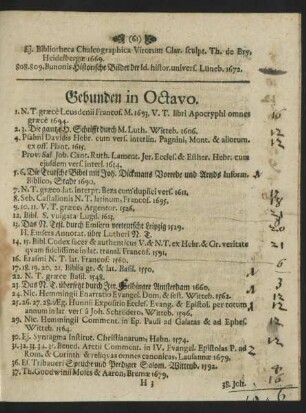 (61)
Ej. Bibliotheca Chalcographica Virorum Clar. sculpt. Th. de Bry,
Heidelbergæ 1669.
808. 809. Bunonis Historische Bilder der Id. histor. univers. Lüneb. 1672.
Gebunden in Octavo.
1. N. T. græcè Leusdenii Francof. M. 1693. V. T. libri Apocryphi omnes
græcè 1694.
2. 3. Die gantze H. Schrifft durch M. Luth. Witteb. 1606.
4. Psalmi Davidis Hebr. cum vers. interlin. Pagnini, Mont. & aliorum.
ex off. Plant. 1615.
Prov. Sal. Job. Cant. Ruth. Lament. Jer. Eccles. & Esther. Hebr. cum
ejusdem vers. interl. 1614.
5. 6. Die Teutsche Bibel mit Joh. Dickmans Vorrede und Arnds Inform.
Biblico, Stade 1690.
7. N. T. græco lat. interpr. Beza cum duplici vers. 1611.
8. Seb. Castalionis N. T. latinum, Francof. 1695.
9. 10. 11. V. T. græcè, Argentor. 1526.
12. Bibl. S. vulgata Lugd. 1613.
13. Das N. Test. durch Emsern verteutscht Leipzig 1529.
H. Emsers Annotat. über Lutheri N. T.
14. 15. Bibl. Codex sacer & authenticus V. & N. T. ex Hebr. & Gr. veritate
quam fidelissimè in lat. transl. Francof. 1591.
16. Erasmi N. T. lat. Francof. 1560.
17. 18. 19. 20. 21. Biblia gr. & lat. Basil. 1550.
22. N. T. græcè Basil. 1543.
23. Das N. T. übersetzt durch Jer. Felbinger Amsterdam 1660.
24. Nic. Hemmingii Enarratio Evangel. Dom. & fest. Witteb. 1562.
25. 26. 27. 28. Æg. Hunnii Expositio Eccles. Evang. & Epistol. per totum
annum in lat. vers. à Joh. Schrödero, Witteb. 1596.
29. Nic. Hemmingii Comment. in Ep. Pauli ad Galatas & ad Ephes.
Witteb. 1564.
30. Ej. Syntagma Institut. Christianarum Hafn. 1574.
31. 32. 33. 34. 35. Bened. Aretii Comment. in IV. Evangel. Epistolas P. ad
Rom. & Corinth. & reliquas omnes canonicas, Lausannæ 1579.
36. El. Tribaueri Sprüch und Prediger Salom. Wittenb. 1592.
37. Th. Goodwini Moses & Aaron, Bremæ 1679.
H 3
38. Joh.